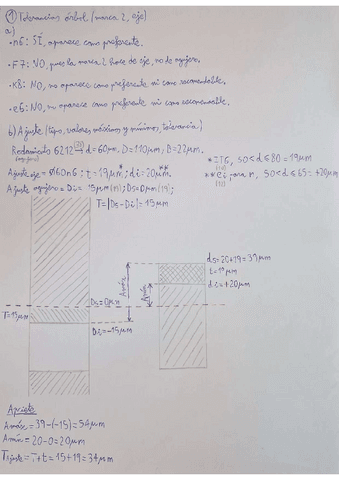 ① Tolerancias árbol (marca 2, eje)
a)
·n6: SÍ, aparece como preferente.
·F7: NO, pues la marca 2 hace de eje, no de agujero.
·k8: NO, no aparece como preferente ni como recomendable.
·e6: NO, no aparece como preferente ni como recomendable.
b) Ajuste (tipo, valores máximo y mínimo, tolerancia)
Rodamiento 6212 → d=60mm, D=110mm, B=22mm.
Ajuste eje = Ø60n6; t=19μm*; di=20μm**
*IT6, 50<d≤80=19μm
**ei para n, 50<d≤65=+20μm
Ajuste agujero = Di=-15μm; Ds=0μm
T=|Ds-Di|=15μm
ds=20+19=39μm
t=19μm
di=+20μm
Amáx
Amín
Ds=0μm
T=15μm
Di=-15μm
Apriete
Amáx=39-(-15)=54μm
Amín=20-0=20μm
Tajuste=T+t=15+19=34μm